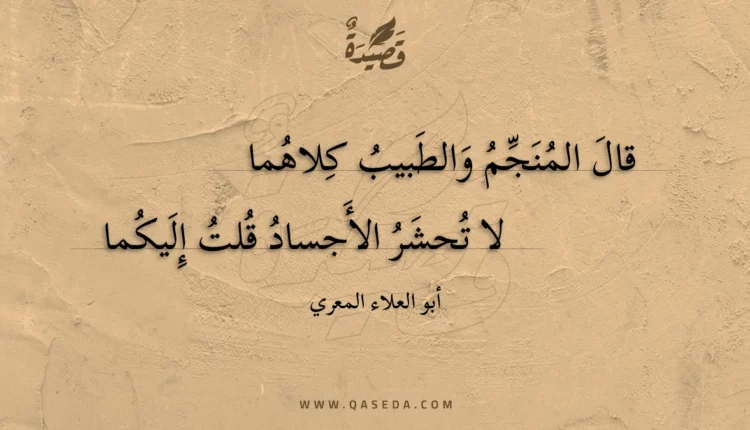 قَصِيدَةٌ
قالَ المُنَجِّمُ وَالطَبيبُ كِلاهُما
لا تُحشَرُ الأَجسادُ قُلتُ إِلَيكُما
أبو العلاء المعري
WWW.QASEDA.COM